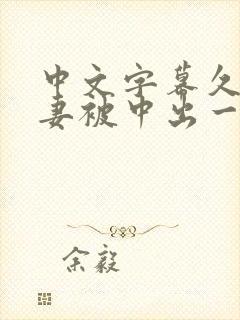 中文字幕久
妻被中出一
余毅